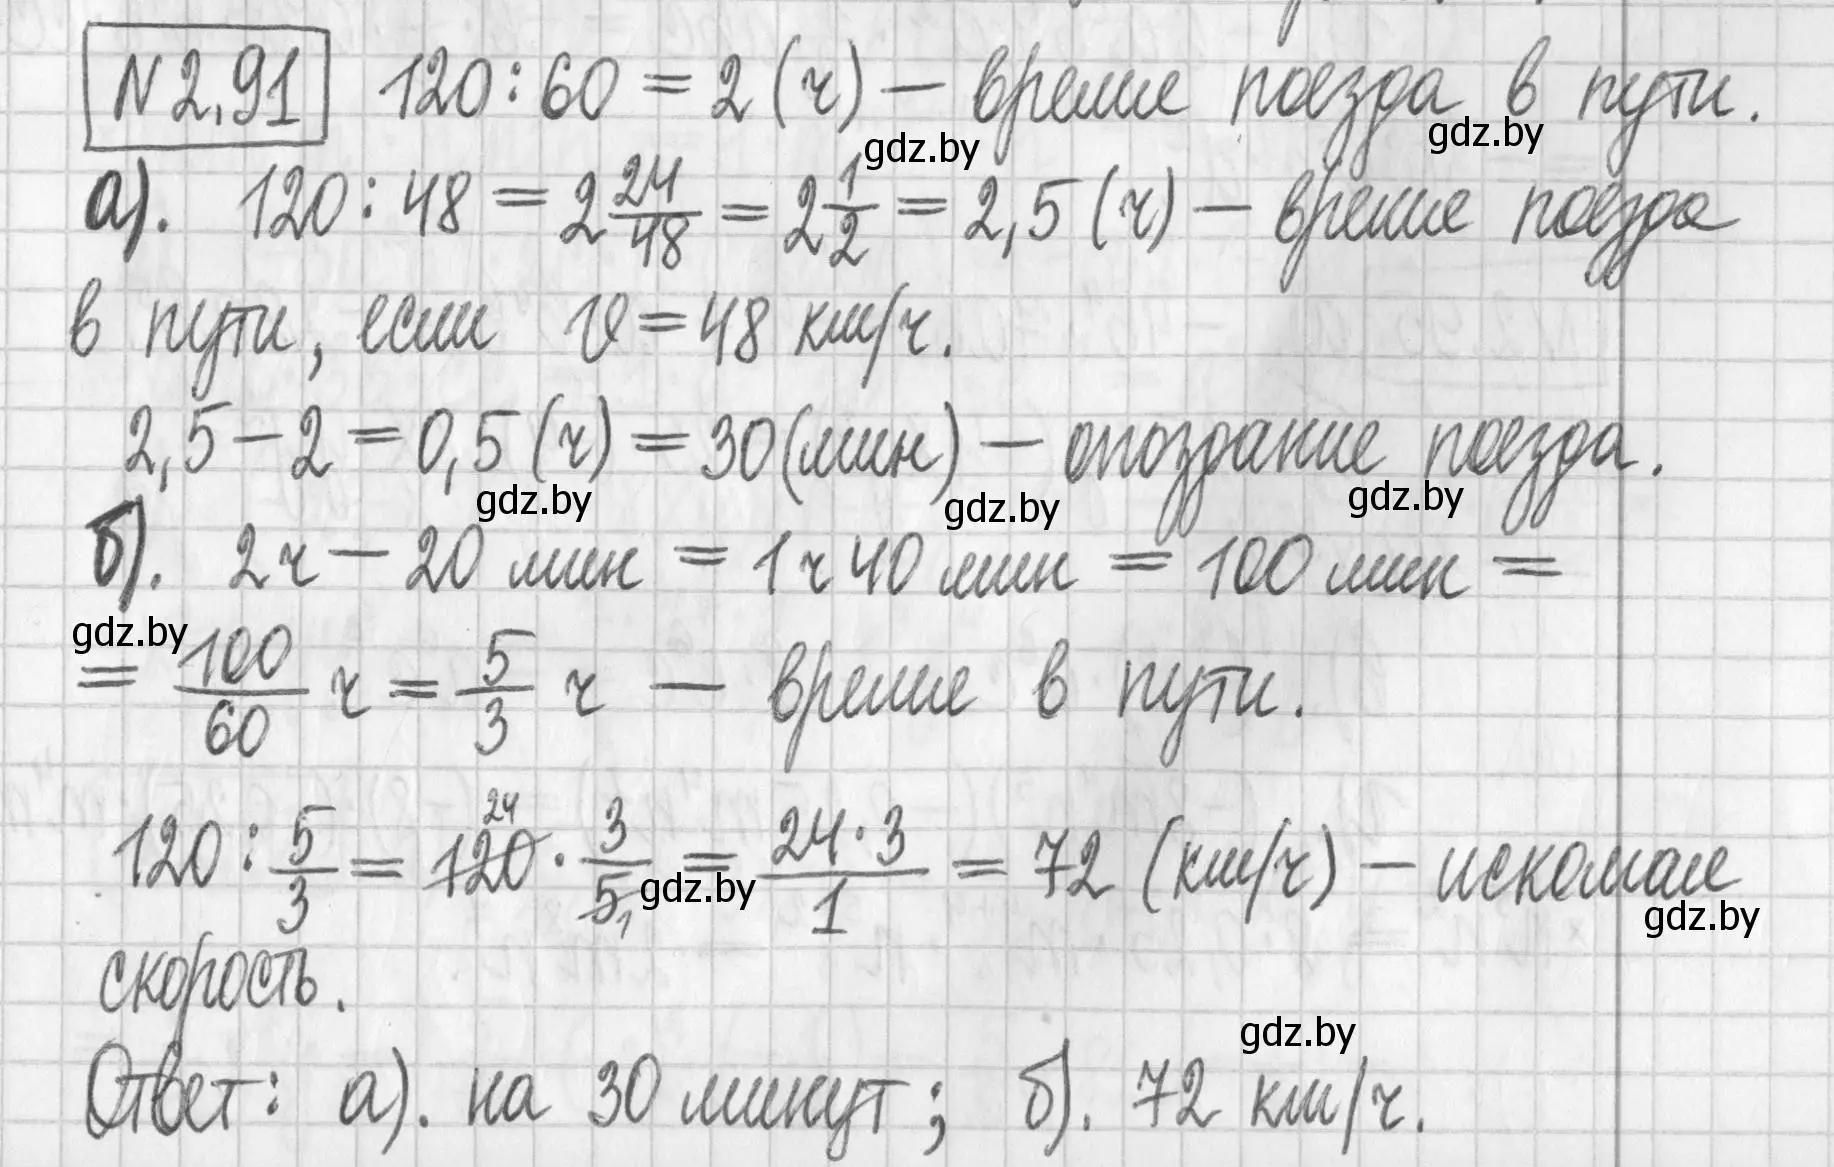 N 2,91 120 : 60 = 2 (ч) – время поезда в пути.
gdz.by gdz.by
а). 120 : 48 = 2 24/48 = 2 1/2 = 2,5 (ч) – время поезда
в пути, если v = 48 км/ч.
2,5 – 2 = 0,5 (ч) = 30 (мин) – опоздание поезда.
gdz.by gdz.by gdz.by
б). 2ч – 20 мин = 1ч 40 мин = 100 мин =
gdz.by
= 100/60 ч = 5/3 ч – время в пути.
120 : 5/3 = 120 24 · 3/5 1 = 24·3/1 = 72 (км/ч) – искомая
gdz.by gdz.by
скорость.
gdz.by
Ответ: а). на 30 минут; б). 72 км/ч.